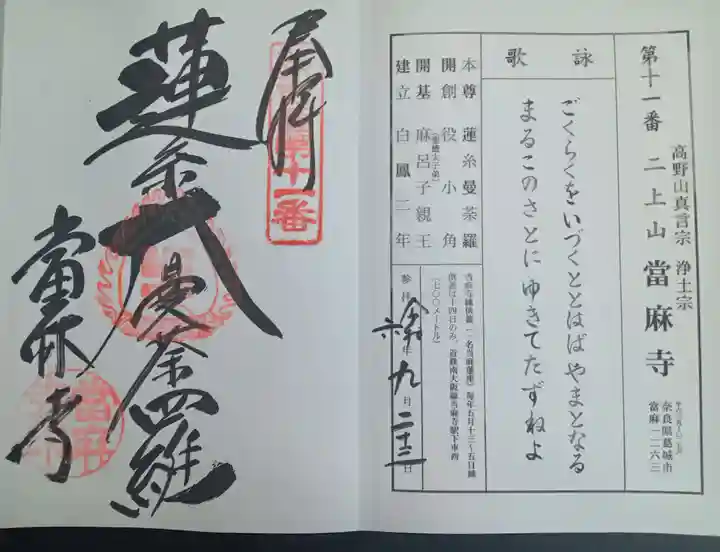 第十一番 二上山 當麻寺
高野山真言宗 浄土宗
奈良県葛城市
當麻一二六三
詠歌
ごくらくをいづくととはばやまとなる
まるこのさとにゆきてたずねよ
本尊 蓮糸曼荼羅
開創 役小角
開基 麻呂子親王
(聖徳太子弟)
建立 白鳳二年
参拝 年九月二十三日
奉拝
第十一番
蓮糸大曼荼羅
當麻寺